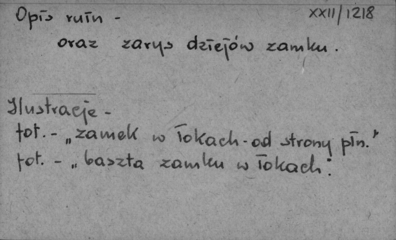 XXII/1218
Opis ruin -
oraz zarys dziejów zamku.
Ilustracje -
fot. - „zamek w Tokach - od strony płn."
fot. - „baszta zamku w Tokach".